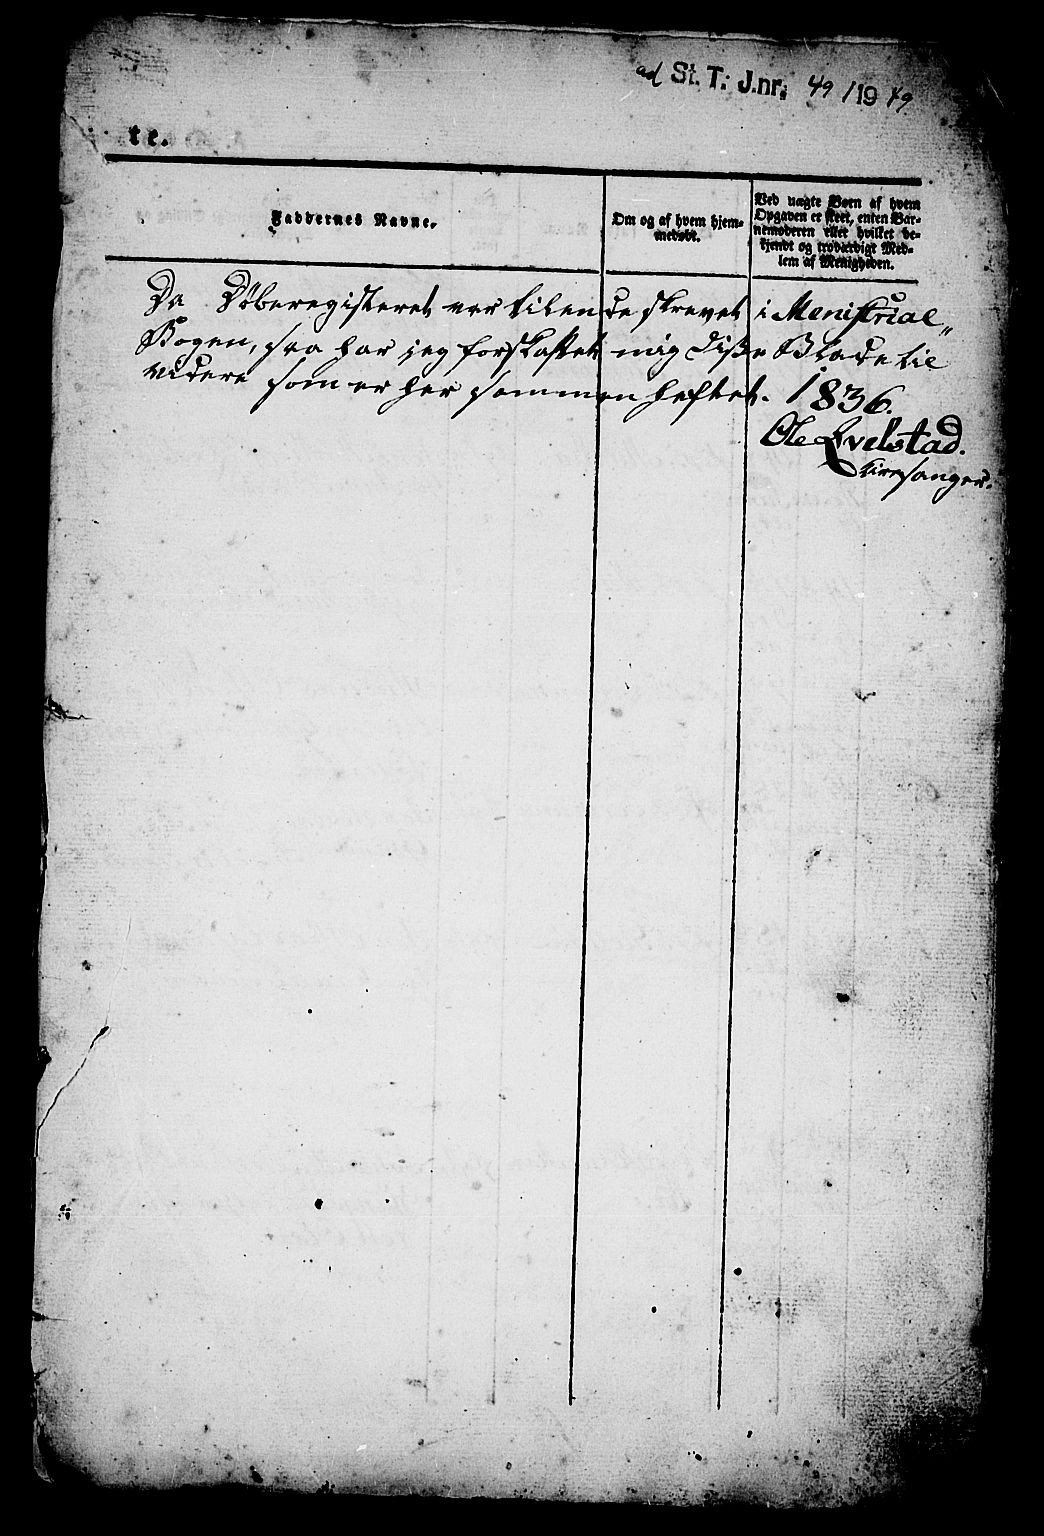 ad St. T. J.nr. 49 / 1949
te.
Faddernes Navne.
Om og af hvem hjem-
medøbt.
Ved uægte Børn af hvem
Opgaven er skeet, enten Bar-
nemoderen eller hvilket be-
kjendt og troværdigt Med-
lem af Menigheden.
Da Døberegisteret var tilende skrevet i Menistrial„
Bogen, saa har jeg forskaffet mig disse Blade til
videre som er her sammenheftet. 1836.
Ole Qvelstad.
Kiresanger.